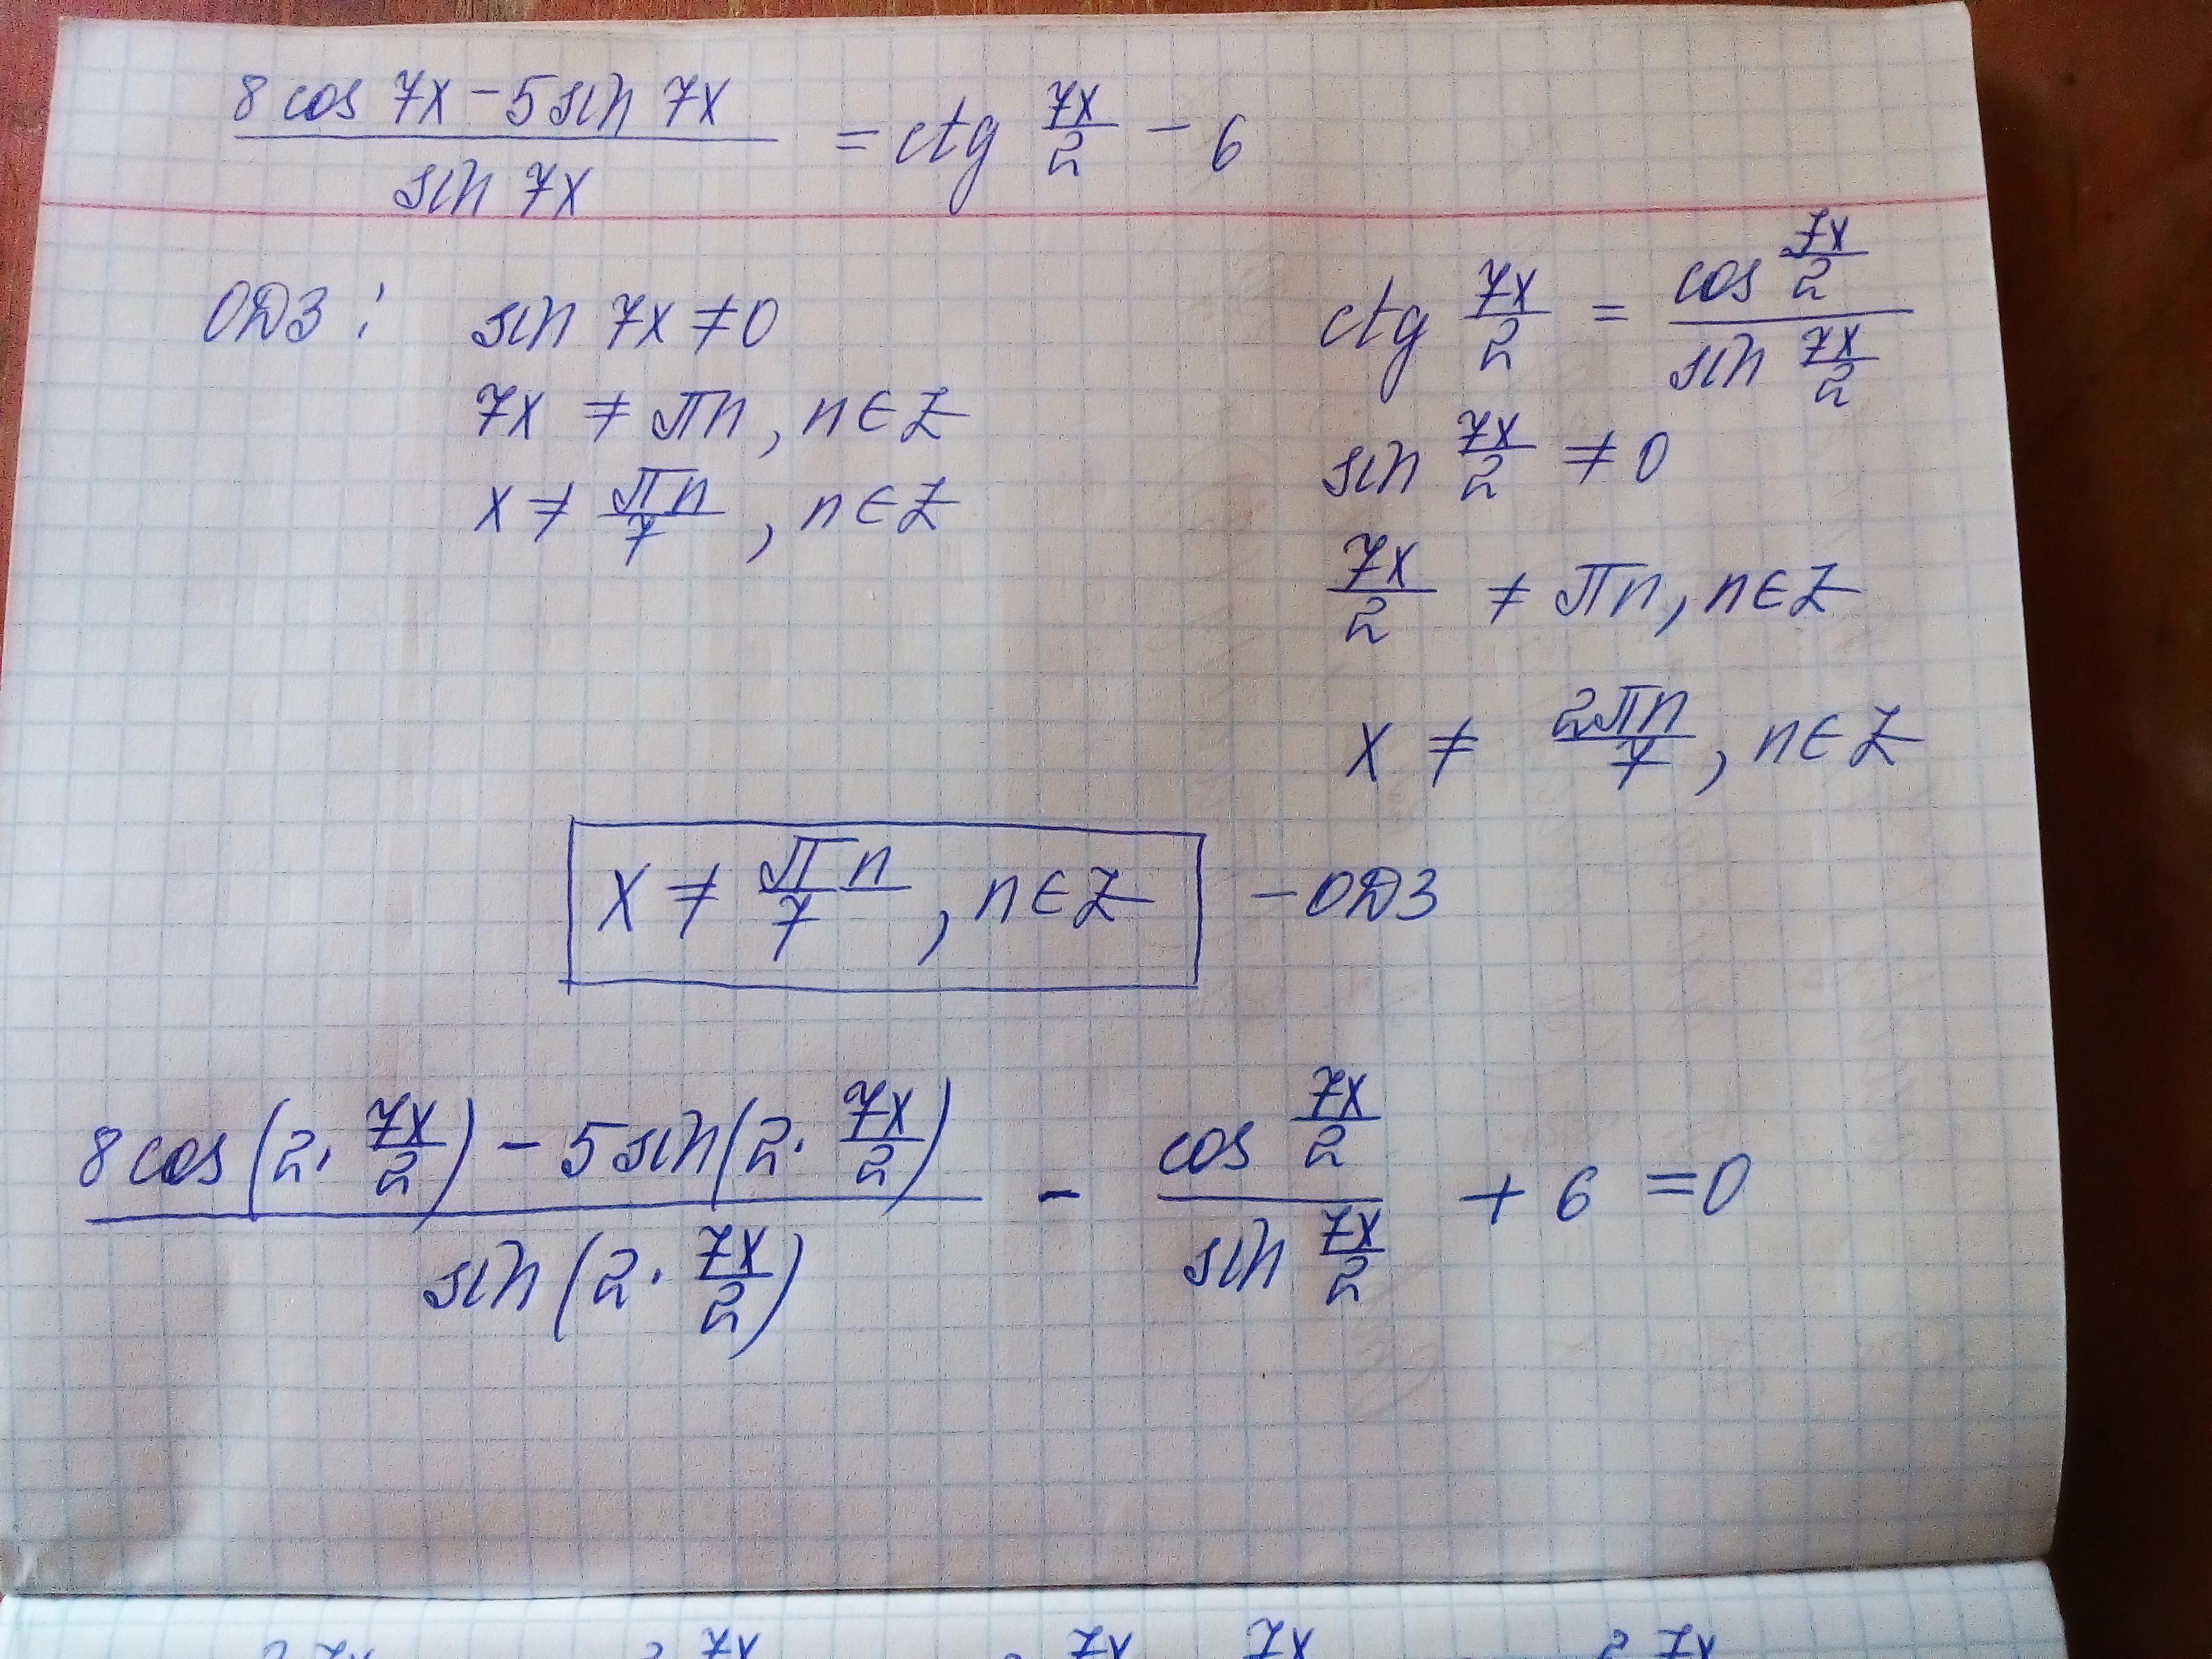 8 cos 7x - 5 sin 7x / sin 7x = ctg 7x/2 - 6
ОДЗ: sin 7x ≠ 0
7x ≠ πn, n ∈ Z
x ≠ πn/7, n ∈ Z
ctg 7x/2 = cos 7x/2 / sin 7x/2
sin 7x/2 ≠ 0
7x/2 ≠ πn, n ∈ Z
x ≠ 2πn/7, n ∈ Z
x ≠ πn/7, n ∈ Z - ОДЗ
8 cos(2 · 7x/2) - 5 sin(2 · 7x/2) / sin(2 · 7x/2) - cos 7x/2 / sin 7x/2 + 6 = 0